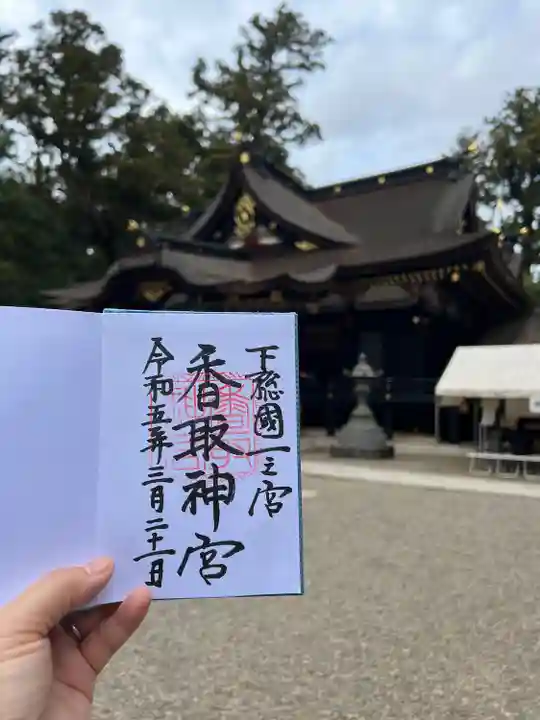 下総國一之宮
香取神宮
令和五年三月二十一日